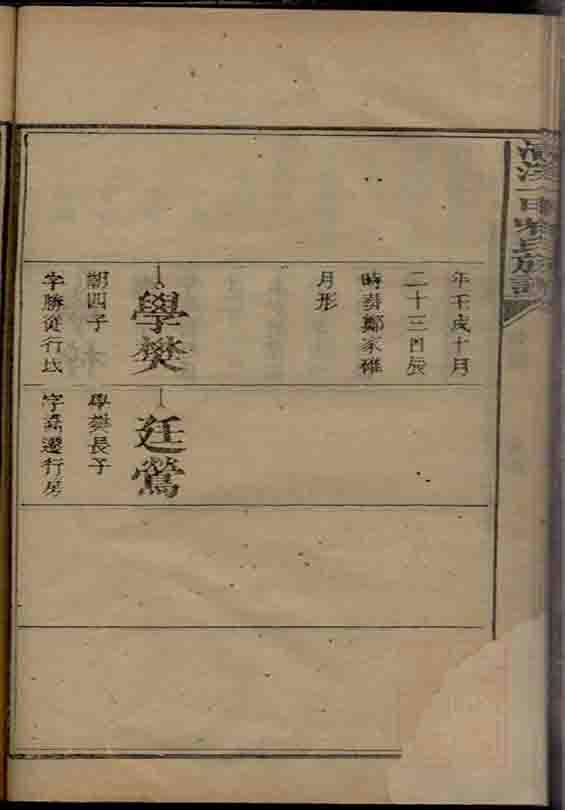 年壬戌十月
二十三日辰
時葬鄭家碓
月形
學樊
朝四子
字勝從行
廷鶯
學樊長子
字喬遷行房
氏族譜